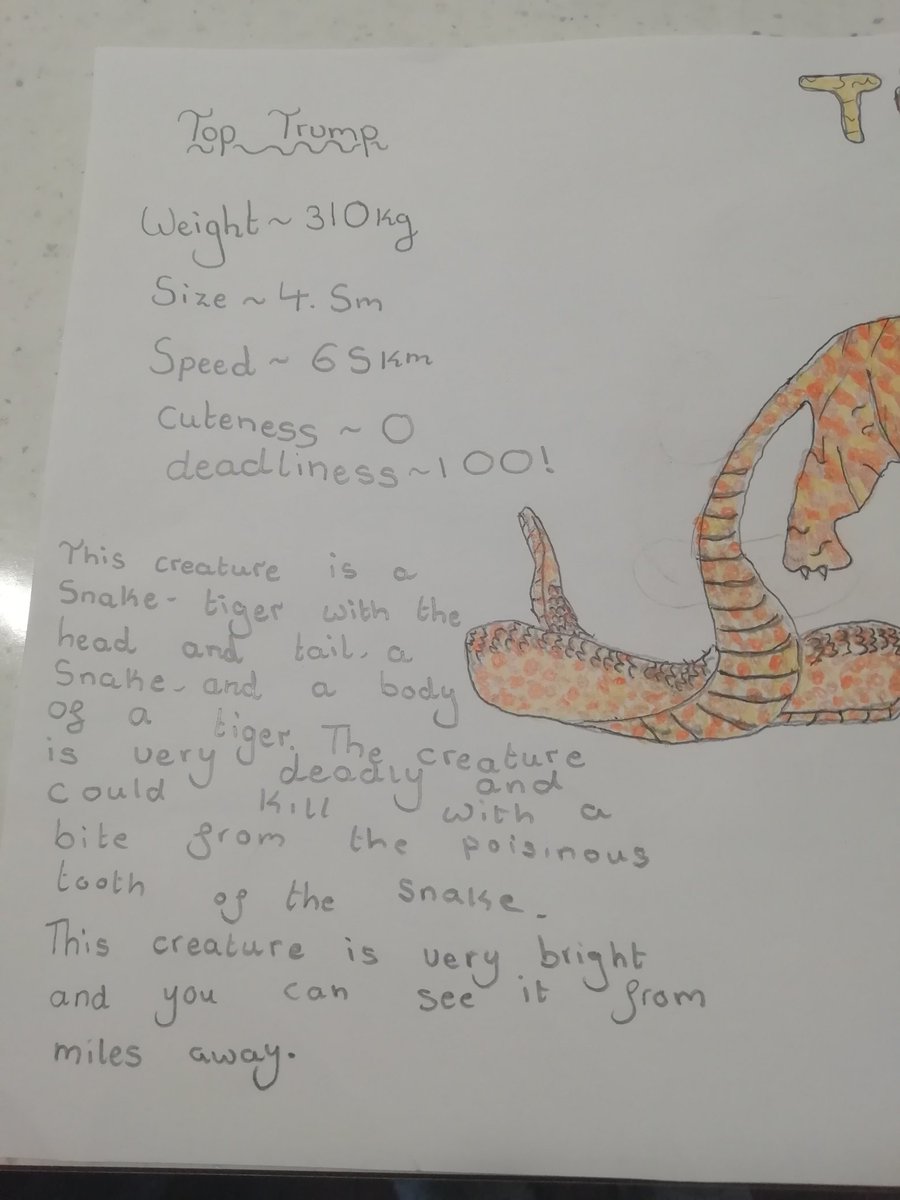 Top Trump
T
Weight ~ 310kg
Size ~ 4.5m
Speed ~ 65km
Cuteness ~ 0
deadliness ~ 100!
This creature is a
Snake- tiger with the
head and tail. a
Snake. and a body
of a tiger. The creature
is very deadly and
could kill with a
bite from the poisinous
tooth of the snake.
This creature is very bright
and you can see it from
miles away.